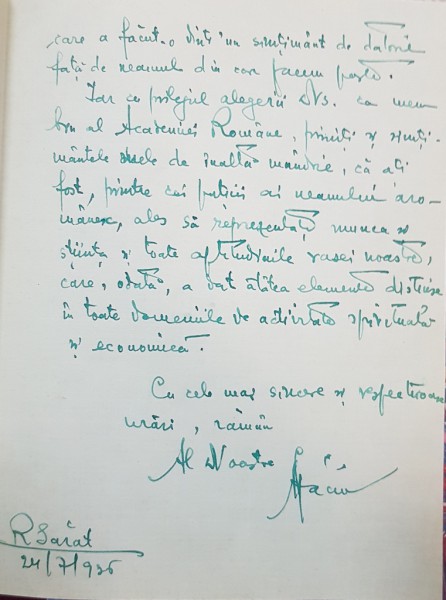 care a făcut-o dintr'un simțimânt de datorie
față de neamul din care facem parte.
Iar cu prilejul alegerii Dvs. ca mem
bru al Academiei Române, primiți și simți-
mântele mele de înaltă mândrie, că ați
fost, printre cei puțini ai neamului aro-
mânesc, ales să reprezentați munca și
știința și toate aptitudinile rasei noastre,
care, odată, a dat atâtea elemente distinse
în toate domeniile de activitate spirituală
și economică.
Cu cele mai sincere și respectuoase
urări, rămân
Al Noastre
R Sărat
24/7/936